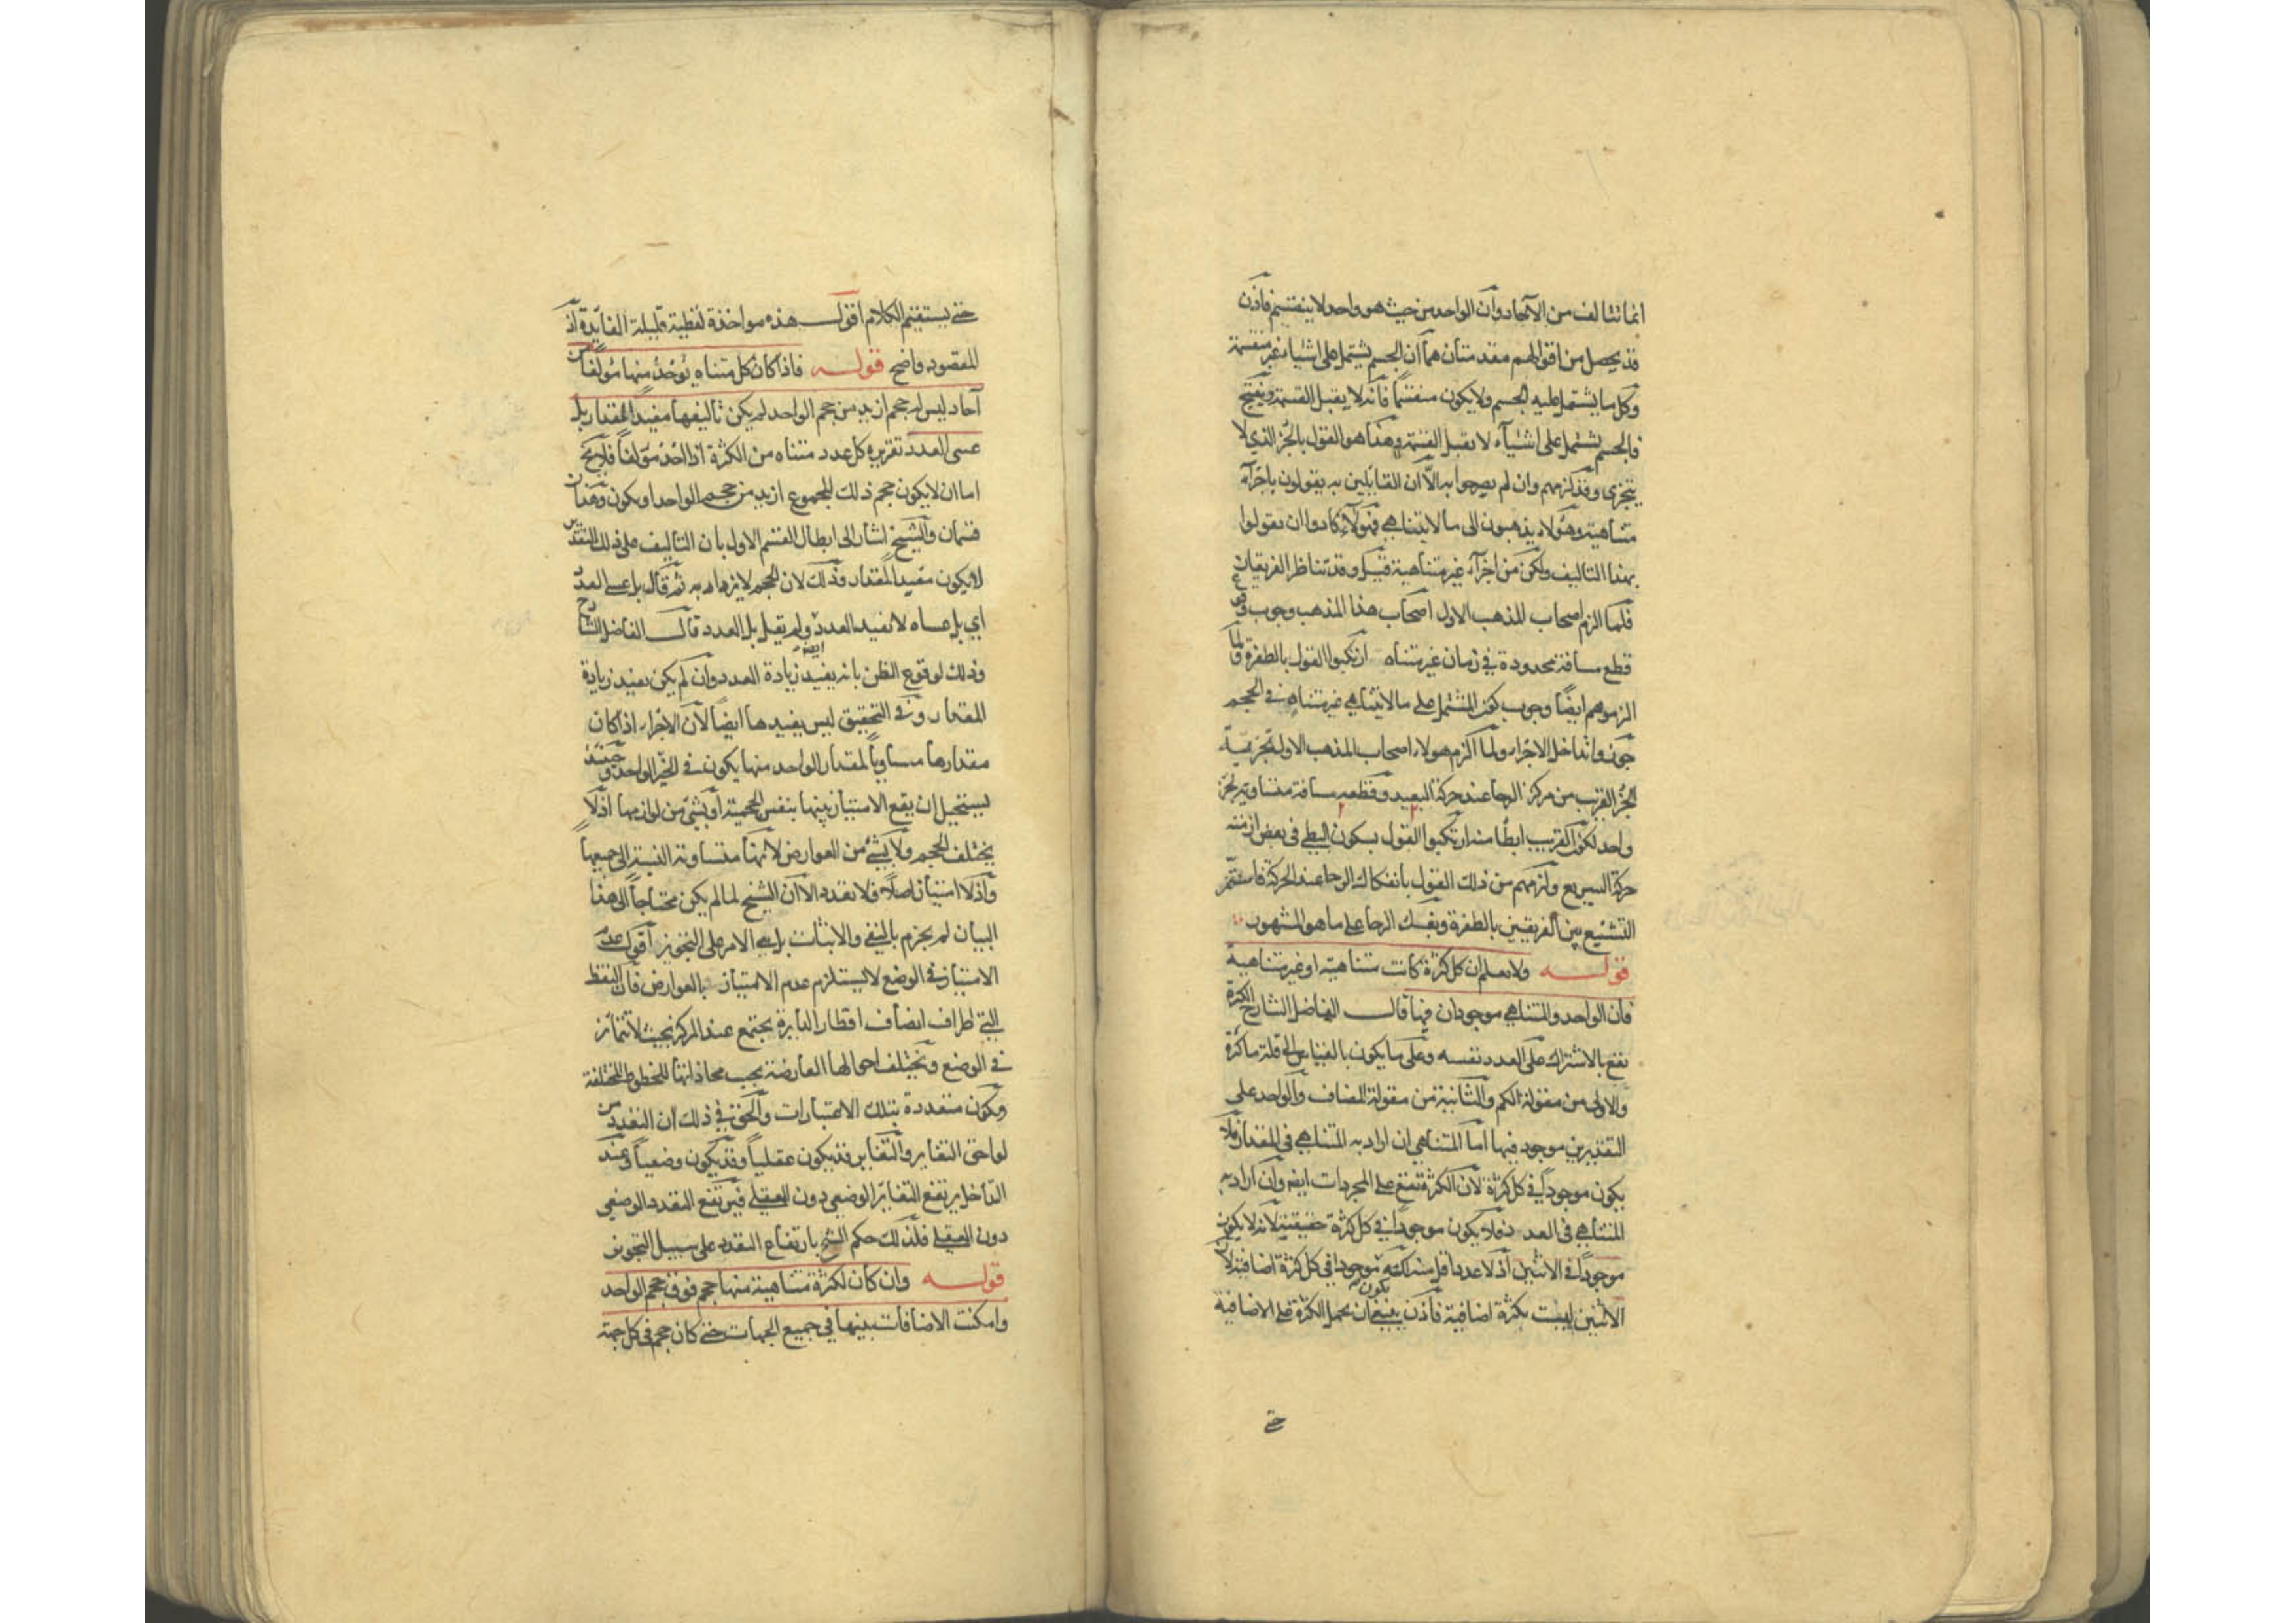 انما تتالف من الآحاد وان الواحد من حيث هو واحد لا ينقسم فاذن
قد يحصل من اقوالهم مقدمتان هما ان الجسم يشتمل على اشياء غير منقسمة
وكل ما يشتمل عليه الجسم ولا يكون منقسماً فانه لا يقبل القسمة وينتج
فالجسم يشتمل على اشياء لا تقبل القسمة وهذا هو القول بالجزء الذي لا
يتجزى وقد لزمهم وان لم يصرحوا به الا ان القايلين به يقولون باجزآء
متناهية وهؤلاء يذهبون الى ما لا يتناهى فهولآء كادوا ان يقولوا
بهذا التاليف ولكن من اجزآء غير متناهية قيل وقد تناظر الفريقان
فلما الزم اصحاب المذهب الاول اصحاب هذا المذهب وجوب وقوع
قطع مسافة محدودة في زمان غير متناه ارتكبوا القول بالطفرة ولما
الزموهم ايضاً وجوب كون المشتمل على ما لا يتناهى غير متناه في الحجم
جوزوا تداخل الاجزاء ولما الزم هولاء اصحاب المذهب الاول تجزئة
الجزء القريب من مركز الرحا عند حركة البعيد وقطعه مسافة مساوية لجزء
واحد لكون القريب ابطأ منه ارتكبوا القول بسكون البطئ في بعض ازمنة
حركة السريع ولزمهم من ذلك القول بانفكاك الرحا عند الحركة فاستمر
التشنيع بين الفريقين بالطفرة وتفكك الرحا على ما هو المشهور
قوله ولا يعلم ان كل كثرة كانت متناهية او غير متناهية
فان الواحد والمتناهي موجودان فيها قال الفاضل الشارح الكثرة
تقع بالاشتراك على العدد نفسه وعلى ما يكون بالقياس الى قلة ما كثرة
والاولى من مقولة الكم والثانية من مقولة المضاف والواحد على
التقديرين موجود فيها اما المتناهي ان اراد به المتناهي في المقدار فلا
يكون موجوداً في كل كثرة لان الكثرة تقع على المجردات ايضا وان اراد به
المتناهي في العدد فلا يكون موجوداً في كل كثرة حقيقية لانه لا يكون
موجوداً في الاثنين اذ لا عدد اقل منه لكنه يكون موجودا في كل كثرة اضافية لان
الاثنين ليست بكثرة اضافية فاذن ينبغي ان يحمل الكثرة على الاضافية
حتى
حتى يستقيم الكلام اقول هذه مواخذة لفظية قليلة الفايدة اذ
المقصود واضح قوله فاذا كان كل متناه يؤخذ منها مؤلفا من
آحاد ليس له حجم ازيد من حجم الواحد لم يكن تاليفها مفيداً للمقدار بل
عسى العدد تقريره كل عدد متناه من الكثرة اذا اخذ مؤلفاً فلا يخ
اما ان لا يكون حجم ذلك المجموع ازيد من حجم الواحد او يكون وهذان
قسمان والشيخ اشار الى ابطال القسم الاول بان التاليف على ذلك التقدير
لا يكون مفيدا للمقدار وذلك لان الحجم لا يزداد به ثم قال بل عسى العدد
اي بل عساه لا يفيد العدد ولم يقل بل العدد قال الفاضل الشارح
وذلك لوقوع الظن بانه يفيد ايضا زيادة العدد وان لم يكن يفيد زيادة
المقدار وفي التحقيق ليس يفيدها ايضاً لان الاجزاء اذا كان
مقدارها مساوياً لمقدار الواحد منها يكون في الحيز الواحد وحينئذ
يستحيل ان يقع الامتياز بينها بنفس الحجمية او بشئ من لوازمها اذ لا
يختلف الحجم ولا بشئ من العوارض لانها متساوية النسبة الى جميعها
واذ لا امتياز اصلا فلا تعدد الا ان الشيخ لما لم يكن محتاجاً الى هذا
البيان لم يجزم بالنفي والاثبات بل بنى الامر على التجويز اقول عدم
الامتياز في الوضع لا يستلزم عدم الامتياز بالعوارض فان النقط
التي اطراف انصاف اقطار الدايرة يجتمع عند المركز بحيث لا تتمايز
في الوضع وتختلف احوالها العارضة بحسب محاذاتها للخطوط المختلفة
وتكون متعددة بتلك الاعتبارات والحق في ذلك ان التعدد من
لواحق التغاير والتغاير قد يكون عقلياً وقد يكون وضعياً وعند
التداخل يرتفع التغاير الوضعي دون العقلي فيرتفع التعدد الوضعي
دون العقلي فلذلك حكم الشيخ بارتفاع التعدد على سبيل التجويز
قوله وان كان لكثرة متناهية منها حجم فوق حجم الواحد
وامكنت الاضافات بينها في جميع الجهات حتى كان حجم في كل جهة